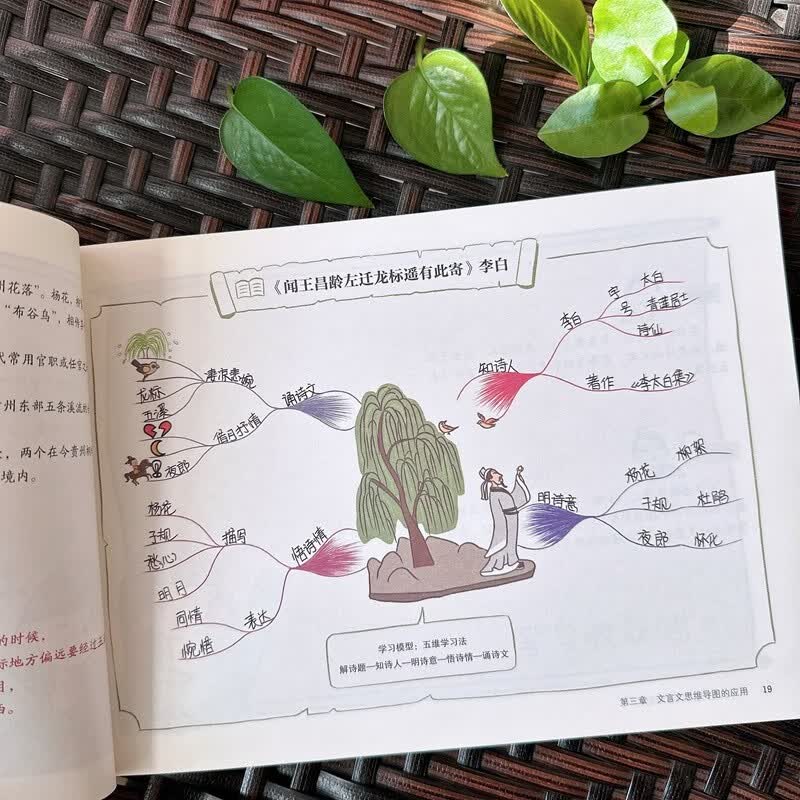 州花落”。杨花,
“布谷鸟”,相传
代常用官职或任官之
州东部五条溪流的
两个在今贵州
境内。
的时候,
标地方偏远要经过五
《闻王昌龄左迁龙标遥有此寄》李白
知诗人
李白
字
太白
号
青莲居士
诗仙
著作
《李太白集》
明诗意
杨花
柳絮
子规
杜鹃
夜郎
怀化
悟诗情
描写
杨花
子规
愁心
明月
表达
同情
惋惜
诵诗文
凄凉悲婉
龙标
五溪
借月抒情
夜郎
学习模型:五维学习法
解诗题—知诗人—明诗意—悟诗情—诵诗文
第三章 文言文思维导图的应用 19